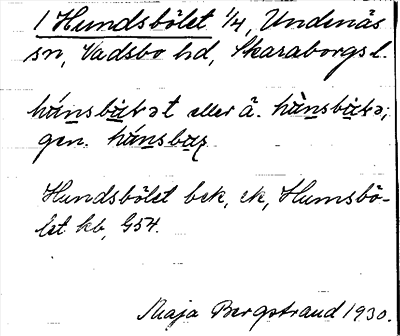 1 Hundsbölet 1/4, Undenäs
sn, Vadsbo hd, Skaraborgs l.
hùnsbɯtət eller ä. hùnsbɯtə;
gen.
Hundsbölet bek, ek, Humsbö-
let kb, G54.
Maja Bergstrand 1930.